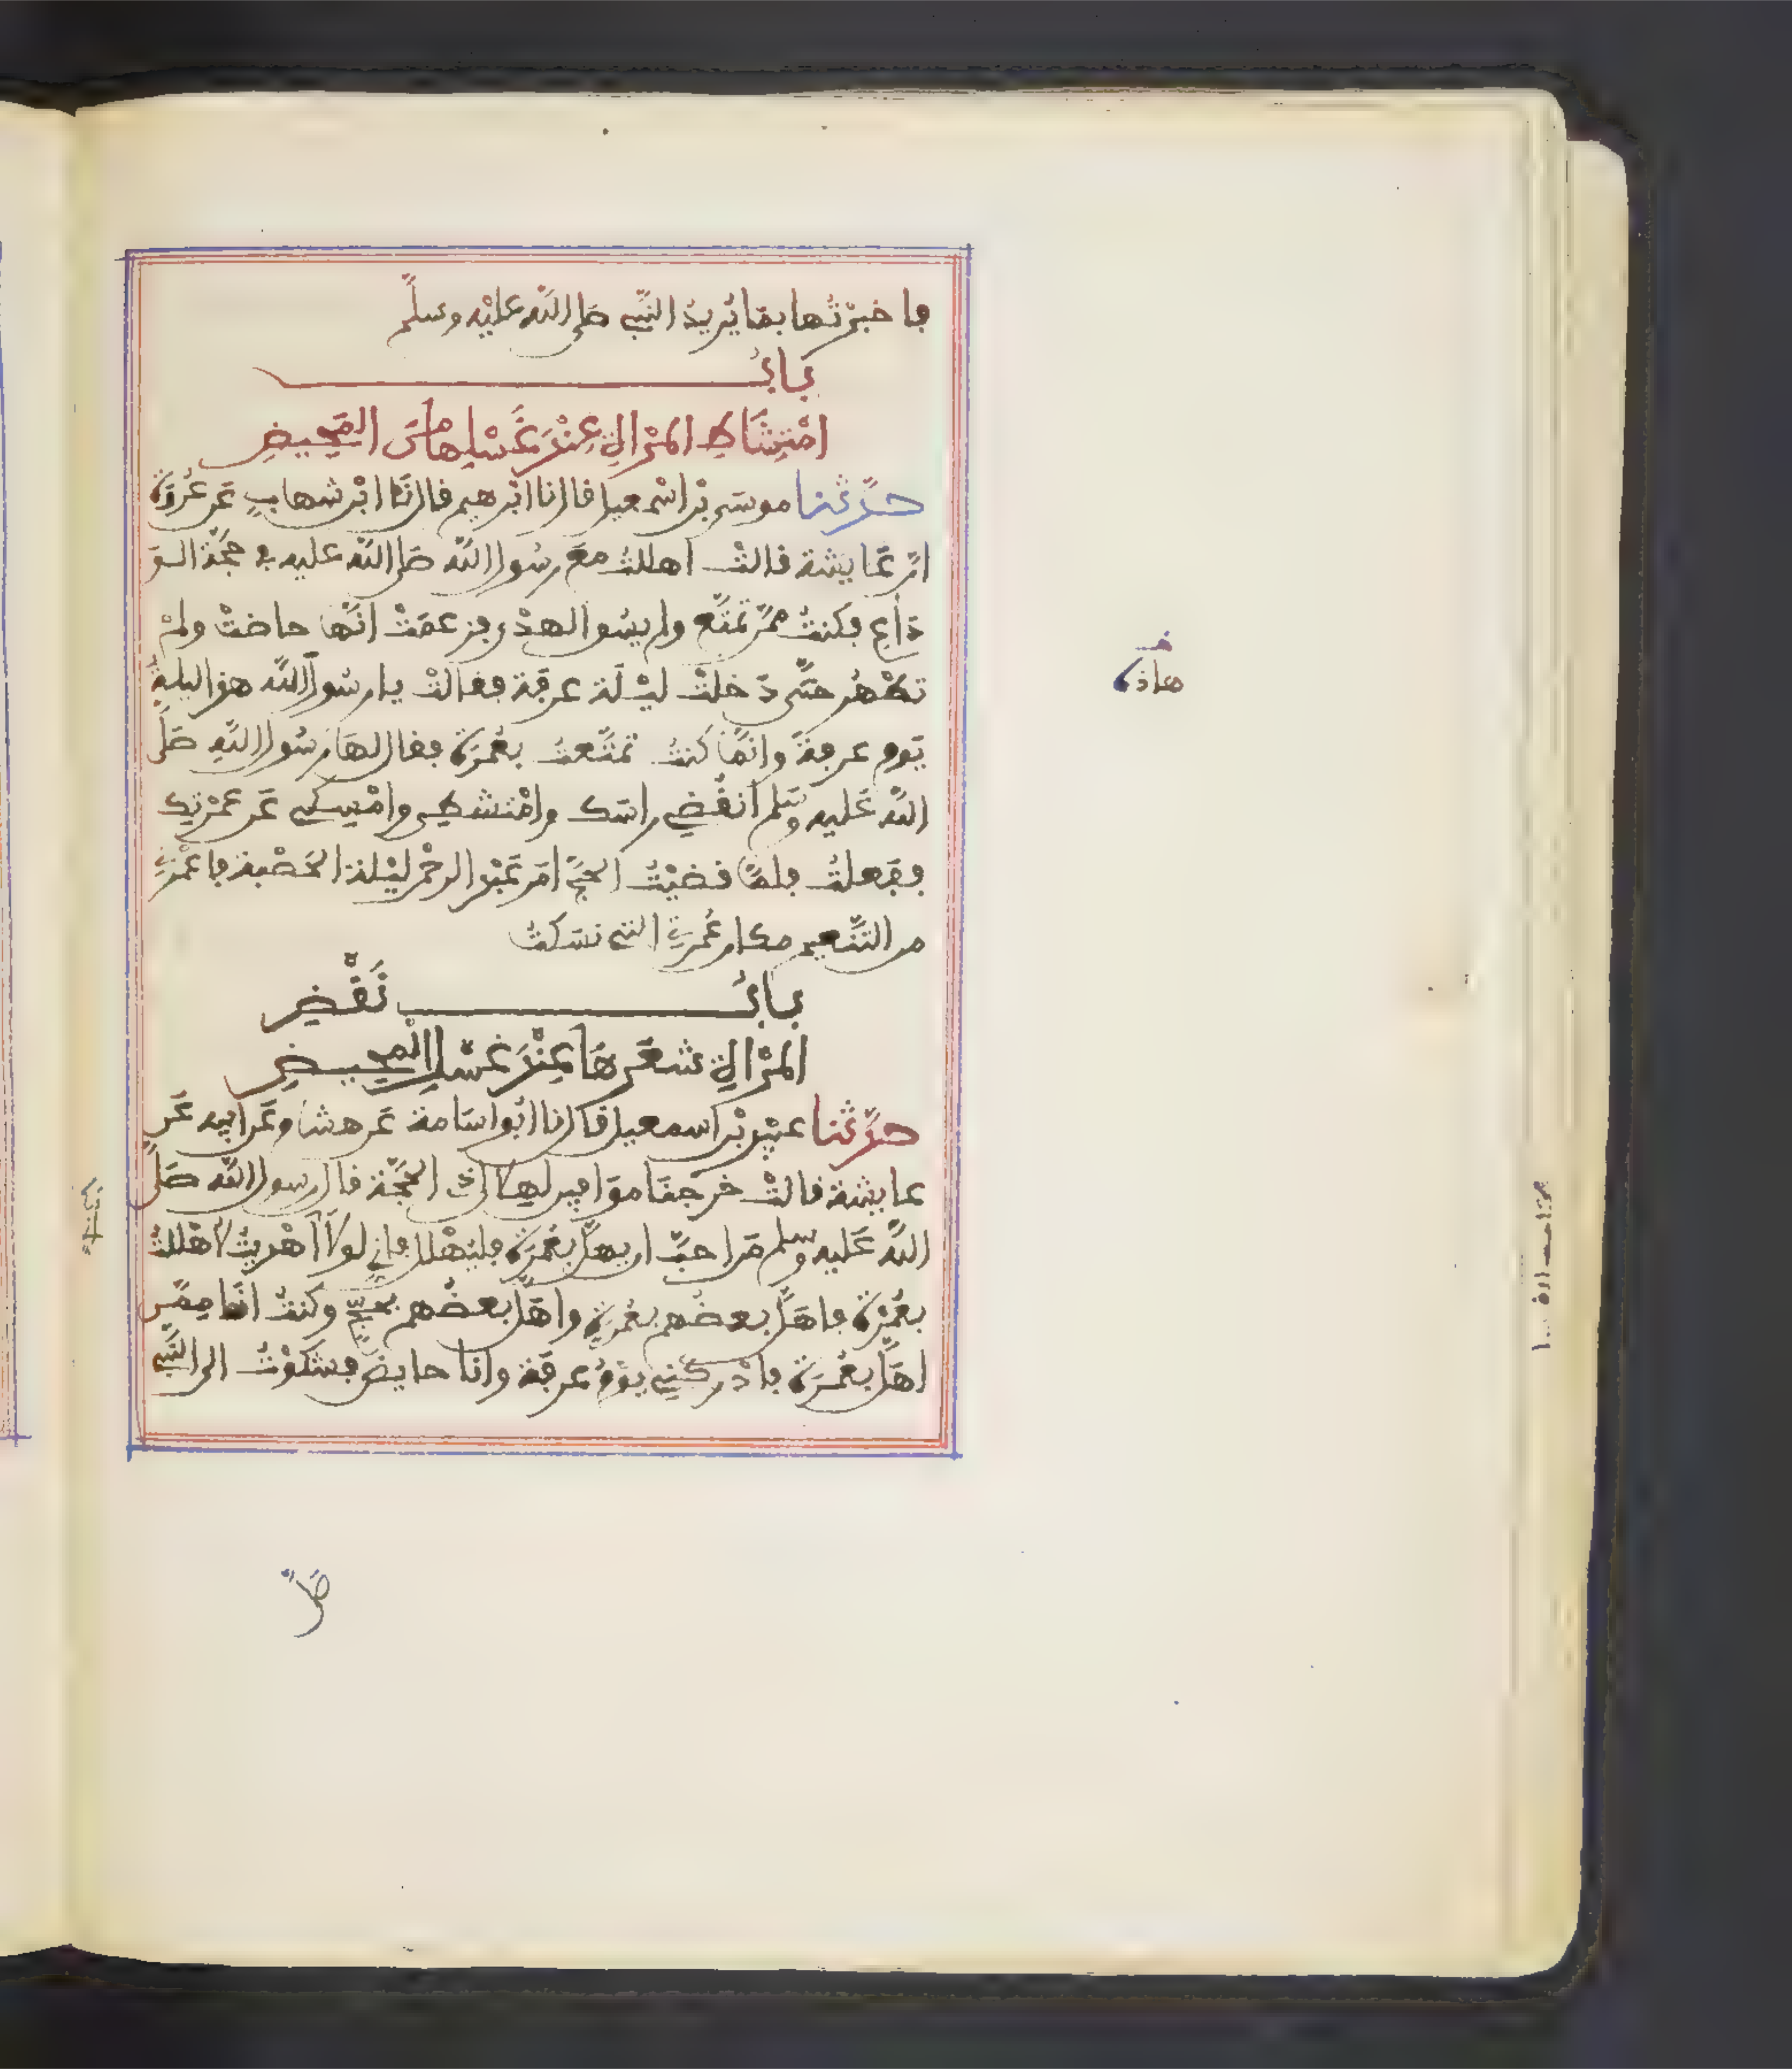 فاخبرتها بما يريد النبي صلى الله عليه وسلم
باب
امتشاط المراة عند غسلها من المحيض
حدثنا موسى بن اسمعيل قال نا ابرهيم قال نا ابن شهاب عن عروة
ان عايشة قالت اهللت مع رسول الله صلى الله عليه في حجة الو
داع فكنت ممن تمتع ولم يسق الهدي فزعمت انها حاضت ولم
تطهر حتى دخلت ليلة عرفة فقالت يا رسول الله هذا ليلة
يوم عرفة وانما كنت تمتعت بعمرة فقال لها رسول الله صلى
الله عليه وسلم انقضي راسك وامتشطي وامسكي عن عمرتك
ففعلت فلما قضيت الحج امر عبد الرحمن ليلة الحصبة فاعمرني
من التنعيم مكان عمرتي التي نسكت
باب نقض
المراة شعرها عند غسل المحيض
حدثنا عبيد بن اسمعيل قال نا ابو اسامة عن هشام عن ابيه عن
عايشة قالت خرجنا موافين لهلال ذي الحجة قال رسول الله صلى
الله عليه وسلم من احب ان يهل بعمرة فليهلل فاني لولا اني اهديت لاهللت
بعمرة فاهل بعضهم بعمرة واهل بعضهم بحج وكنت انا ممن
اهل بعمرة فادركني يوم عرفة وانا حايض فشكوت الى النبي
هاذه
صلى